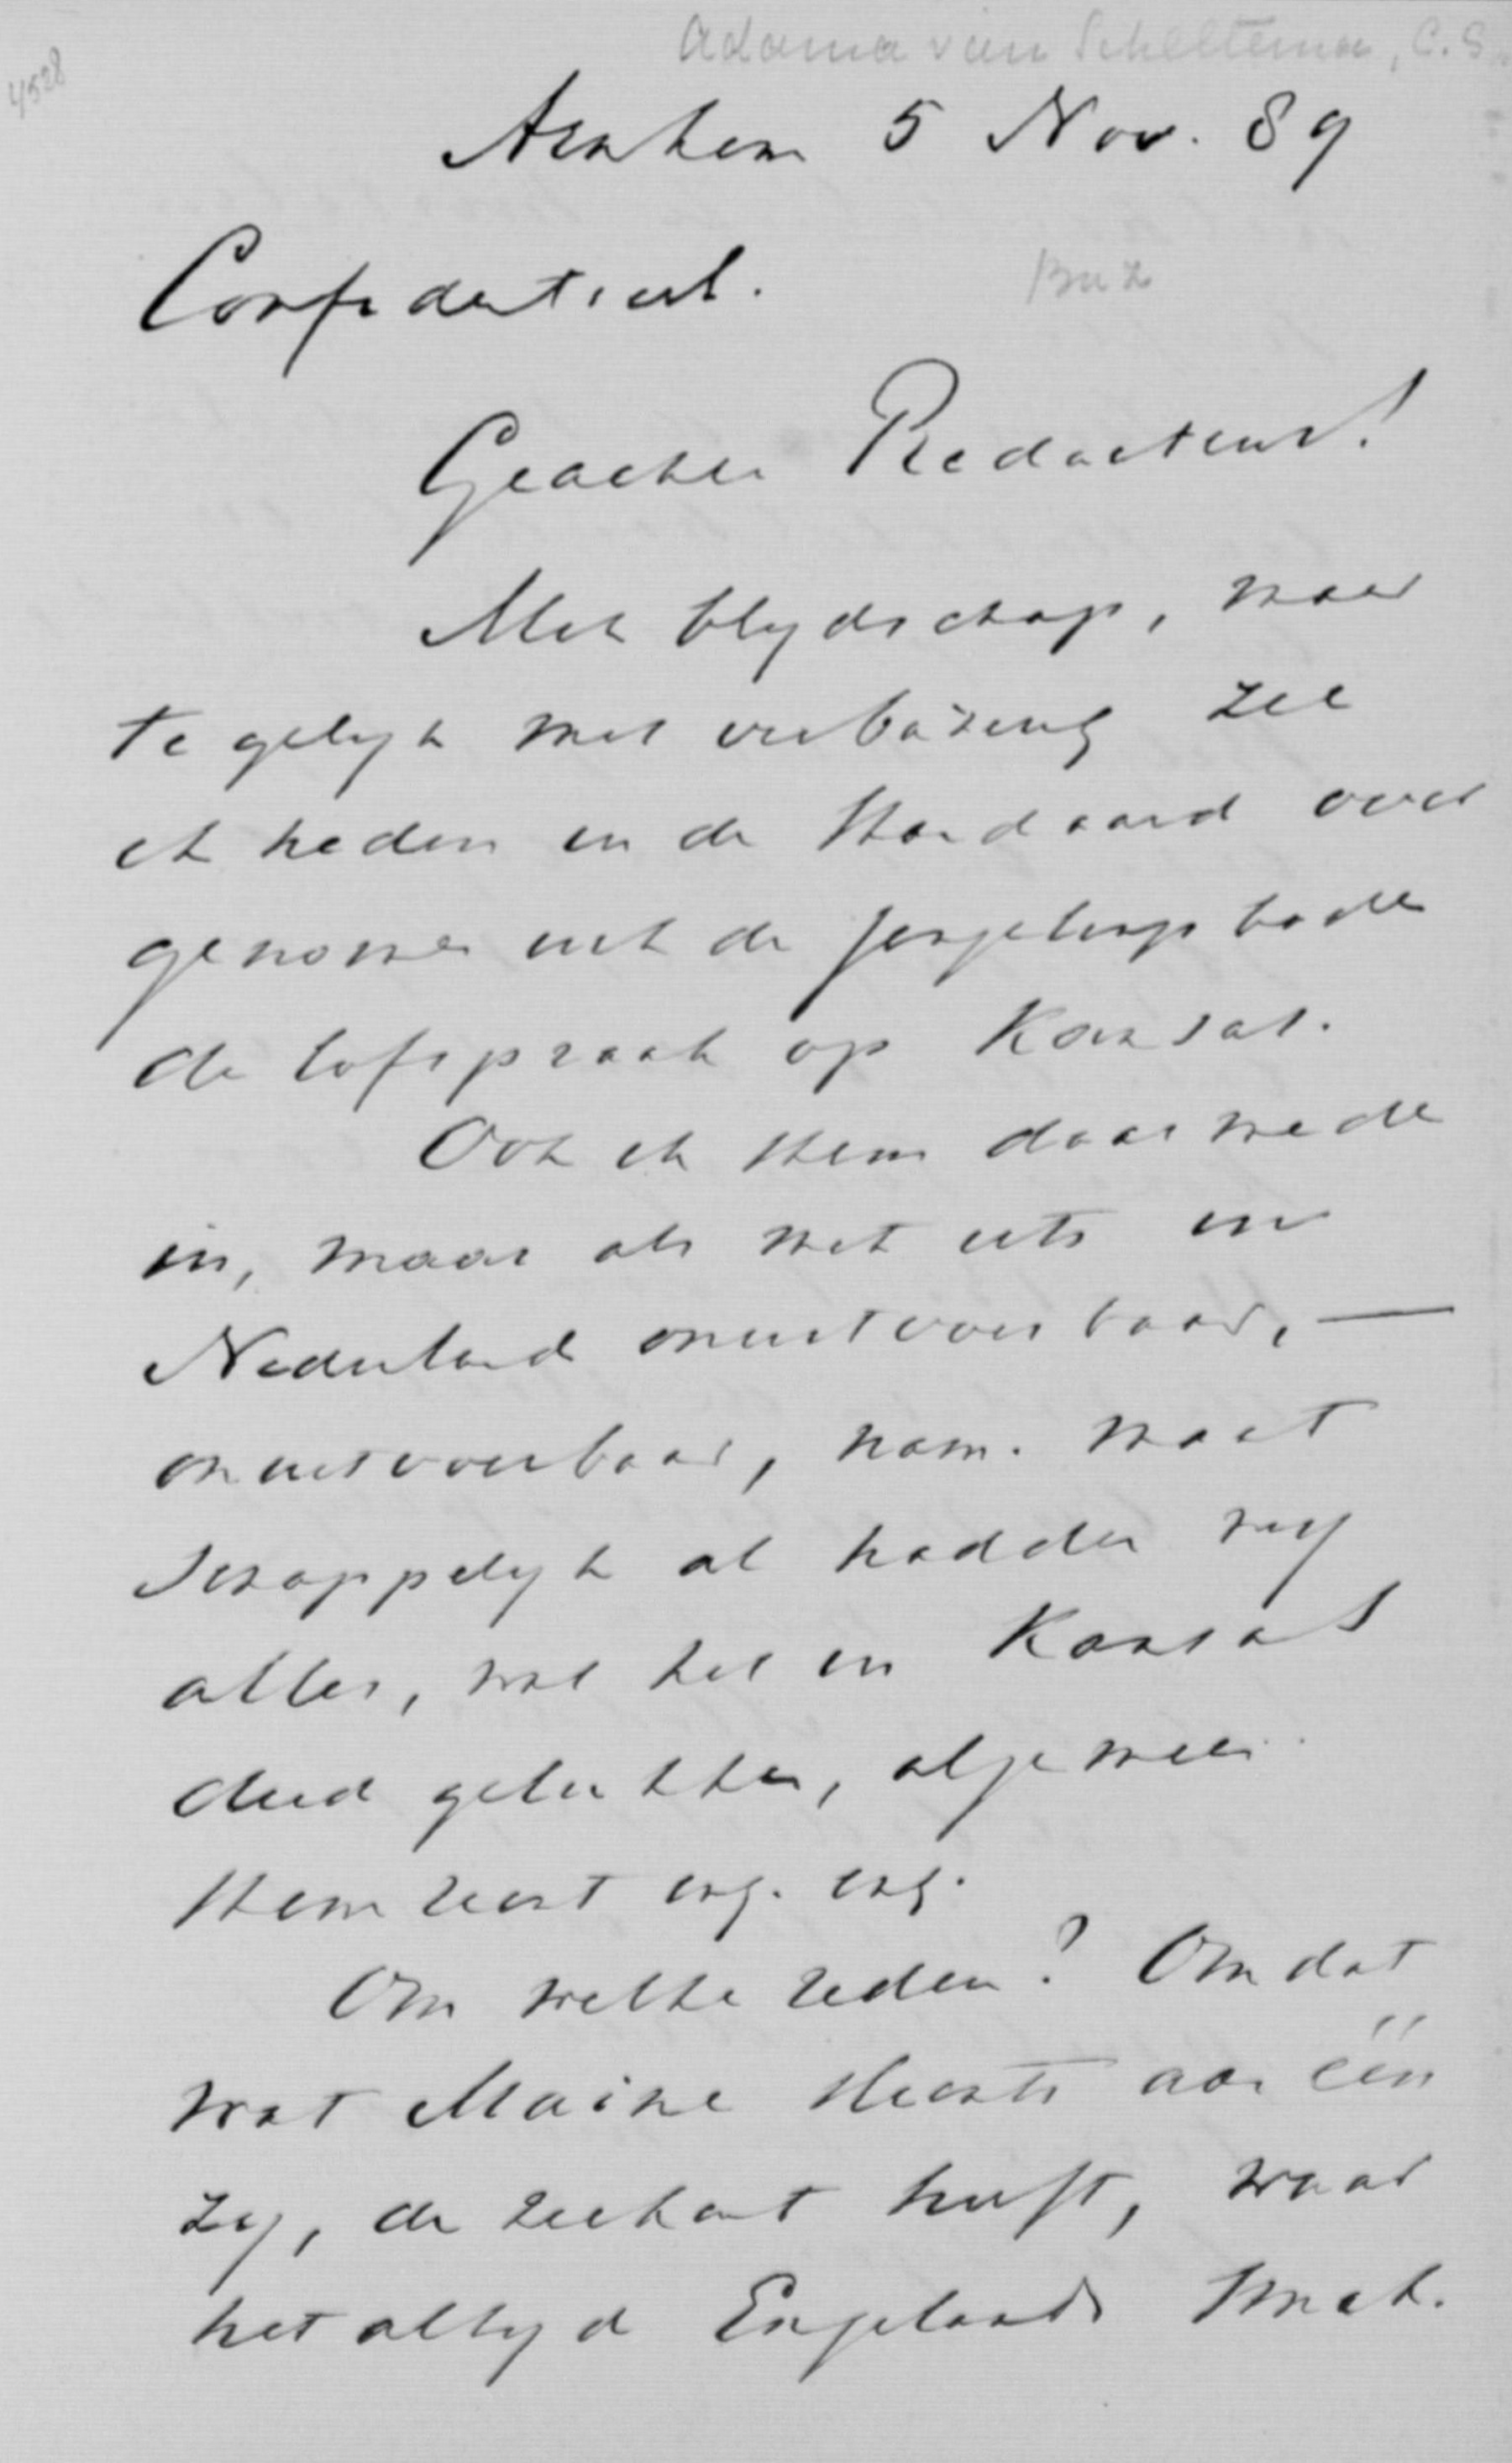 Adama van Scheltema, C.S.
4528
Arnhem 5 Nov. 89
Confidentieel.
Geachte Redacteur!
Met blydschap, maar
te gelyk met verbazing zal
ik heden in de Standaard over
genomen uit de Jongelings bode
de lofspraak op Kansas.
Ook ik stem daarmede
in, maar als met iets in
Nederland onuitvoerbaar, —
onuitvoerbaar, nam. maat
schappelyk al hadden wy
alles, wat het in Kansas
deed gelukken, algemeen
stemrecht enz. enz.
Om welke reden? Omdat
wat Maine slechts aan één
zy, de zeekant heeft, waar
het altyd Engelands smok.